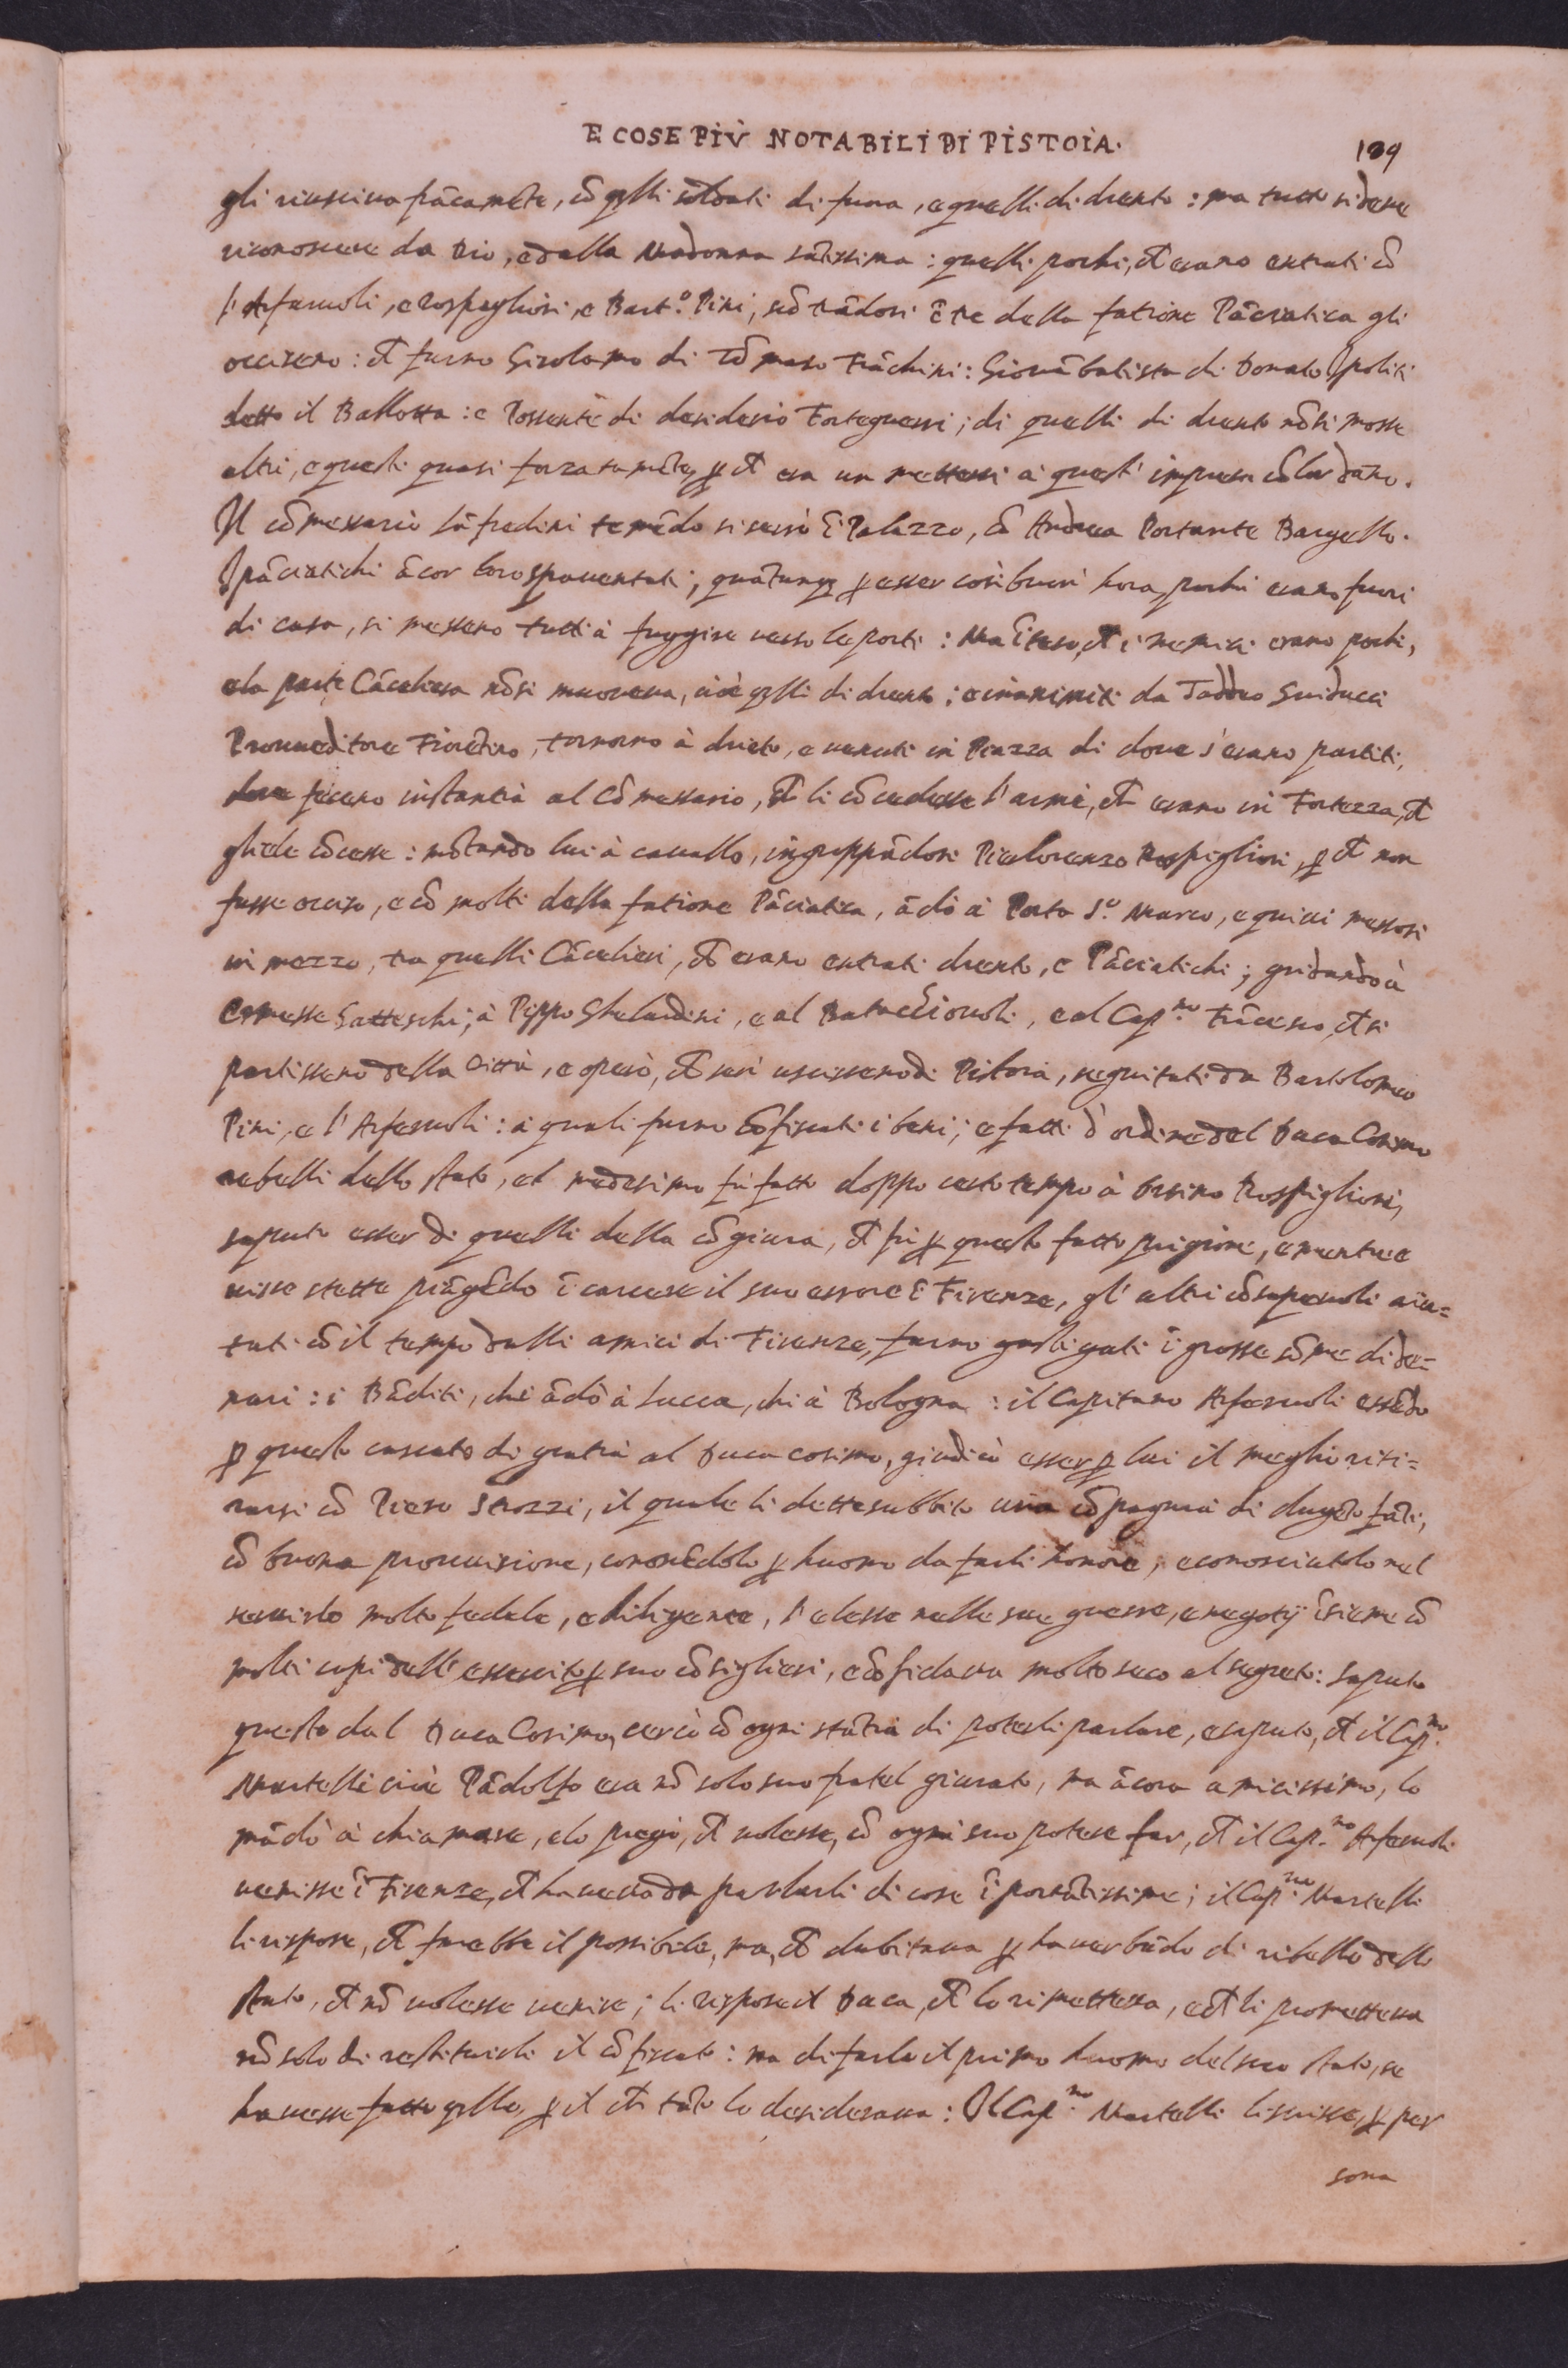 E COSE PIÙ NOTABILI DI PISTOIA. 139
gli riusciva frācamēte, cō qlli soldati di fuora, e quelli di drento : ma tutto si deve
riconoscere da Dio, e dalla Madonna sātissima : quelli pochi, ch̄ erano entrati cō
l'Arfaruoli, e Rospigliosi, e Bart.º Pini, scōtrādosi ī tre della fatione Pāciatica gli
occisero : ch̄ furno Girolamo di Tōmaso Frāchini : Giovābatista di Donato Ipoliti
detto il Ballotta : e Possente di desiderio Forteguerri ; di quelli di drento nō si mosse
altri, e questi quasi forzatamēte, p ch̄ era un mettersi à quest' impresa cō lor dāno.
Il cōmessario Lāfredini temēdo si serrò ī Palazzo, cō Andrea Portante Bargello.
I pāciatichi ācor loro spaventati, quātunq p esser così buon' hora, pochi erano fuori
di casa, si messeno tutti à fuggire verso le porti : Ma īteso, ch̄ i nemici erano pochi,
e la parte Cācelliera nō si muoveva, cioè qlli di drento ; e inanimiti da Taddeo Guiducci
Provveditore Fiorētino, tornorno à drieto, e venuti in Piazza di dove s'erano partiti,
dove feceno instantia al Cōmessario, ch̄ li cōcedesse l'arme, ch̄ erano in Fortezza, ch̄
gliele cōcesse : mōtando lui à cavallo, ingroppādosi Pierlorenzo Rospigliosi, p ch̄ non
fusse occiso, e cō molti della fatione Pāciatica, ādò à Porta S.º Marco, e quivi messosi
in mezzo, tra quelli Cācelieri, ch̄ erano entrati drento, e Pāciatichi ; gridando à
Ermesse Gatteschi, à Pippo Ghelardini, e al Batuccionoli, e al Cap.no Frācesco, ch̄ si
partisseno della Città, e operò, ch̄ essi uscisseno di Pistoia, seguitati da Bartolomeo
Pini, e l'Arfaruoli : à quali furno cōfiscati i beni ; e fatti d'ordine del Duca Cosimo
rebelli dello stato, el medesimo fù fatto doppo certo tempo à Orsino Rospigliosi,
saputo esser di quelli della cōgiura, ch̄ fù p questo fatto prigione, e mentre e
visse stette piāgēdo ī carcere il suo errore ī Firenze, gl' altri cōsapevoli aiu=
tati cō il tempo dalli amici di Firenze, furno gastigati ī grosse sōme di de=
nari : i Bāditi, chi ādò à Lucca, chi à Bologna : il Capitano Arfaruoli essēdo
p questo cascato di gratia al Duca cosimo, giudicò esser p lui il meglio riti=
rarsi cō Piero Strozzi, il quale li dette subbito una cōpagnia di dugēto fāti,
cō buona provvisione, conoscēdolo p huomo da farli honore, e conosciutolo nel
servirlo molto fedele, e diligente, l'elesse nelle sue guerre, e negotij īsieme cō
molti capi dell'essercito p suo cōsiglieri, e cōfidava molto seco al segreto : saputo
questo dal Duca Cosimo, cercò cō ogni stātia di poterli parlare, e saputo, ch̄ il Cap.no
Martelli cioè Pādolfo era nō solo suo fratel giurato, ma ācora amicissimo, lo
mādò à chiamare, e lo pregò, ch̄ volesse, cō ogni suo potere far, ch̄ il Cap.no Arfaruoli
venisse ī Firenze, ch̄ haveva da parlarli di cose īportātissime ; il Cap.no Martelli
li rispose, ch̄ farebbe il possibile, ma, ch̄ dubitava p haver bādo di ribello dello
stato, ch̄ nō volesse venire ; li rispose il Duca, ch̄ lo rimetteva, e ch̄ li prometteva
nō solo di restituirli il cōfiscato : ma di farlo il primo huomo del suo stato, se
havesse fatto qllo, p il ch̄ tāto lo desiderava : Il Cap.no Martelli li scrisse, p per
sona